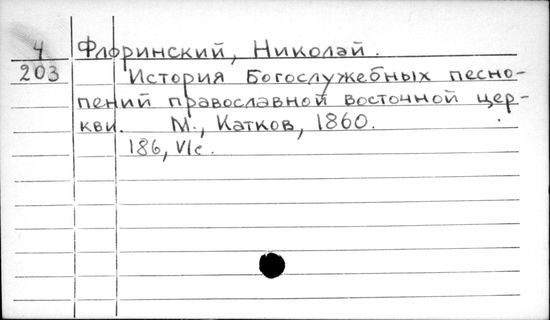 4 Флоринский, Николай.
203 История Богослужебных песно-
пений православной восточной цер-
кви. М., Катков, 1860.
186, VIс.